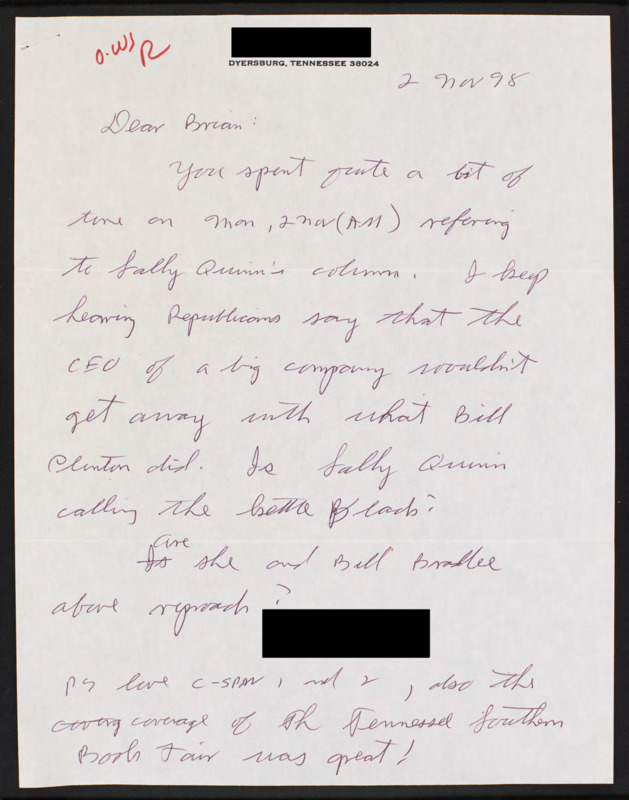 O-WJ R
DYERSBURG, TENNESSEE 38024
2 Nov 98
Dear Brian:
You spent quite a bit of
time on Mon, 2 Nov (AM) refering
to Sally Quinn's column. I keep
hearing Republicans say that the
CEO of a big company wouldn't
get away with what Bill
Clinton did. Is Sally Quinn
calling the kettle black?
are
Is she and Bill Bradlee
above reproach?
PS love C-SPAN 1 and 2, also the
coverg coverage of th Tennessee Southern
Book Fair was great!